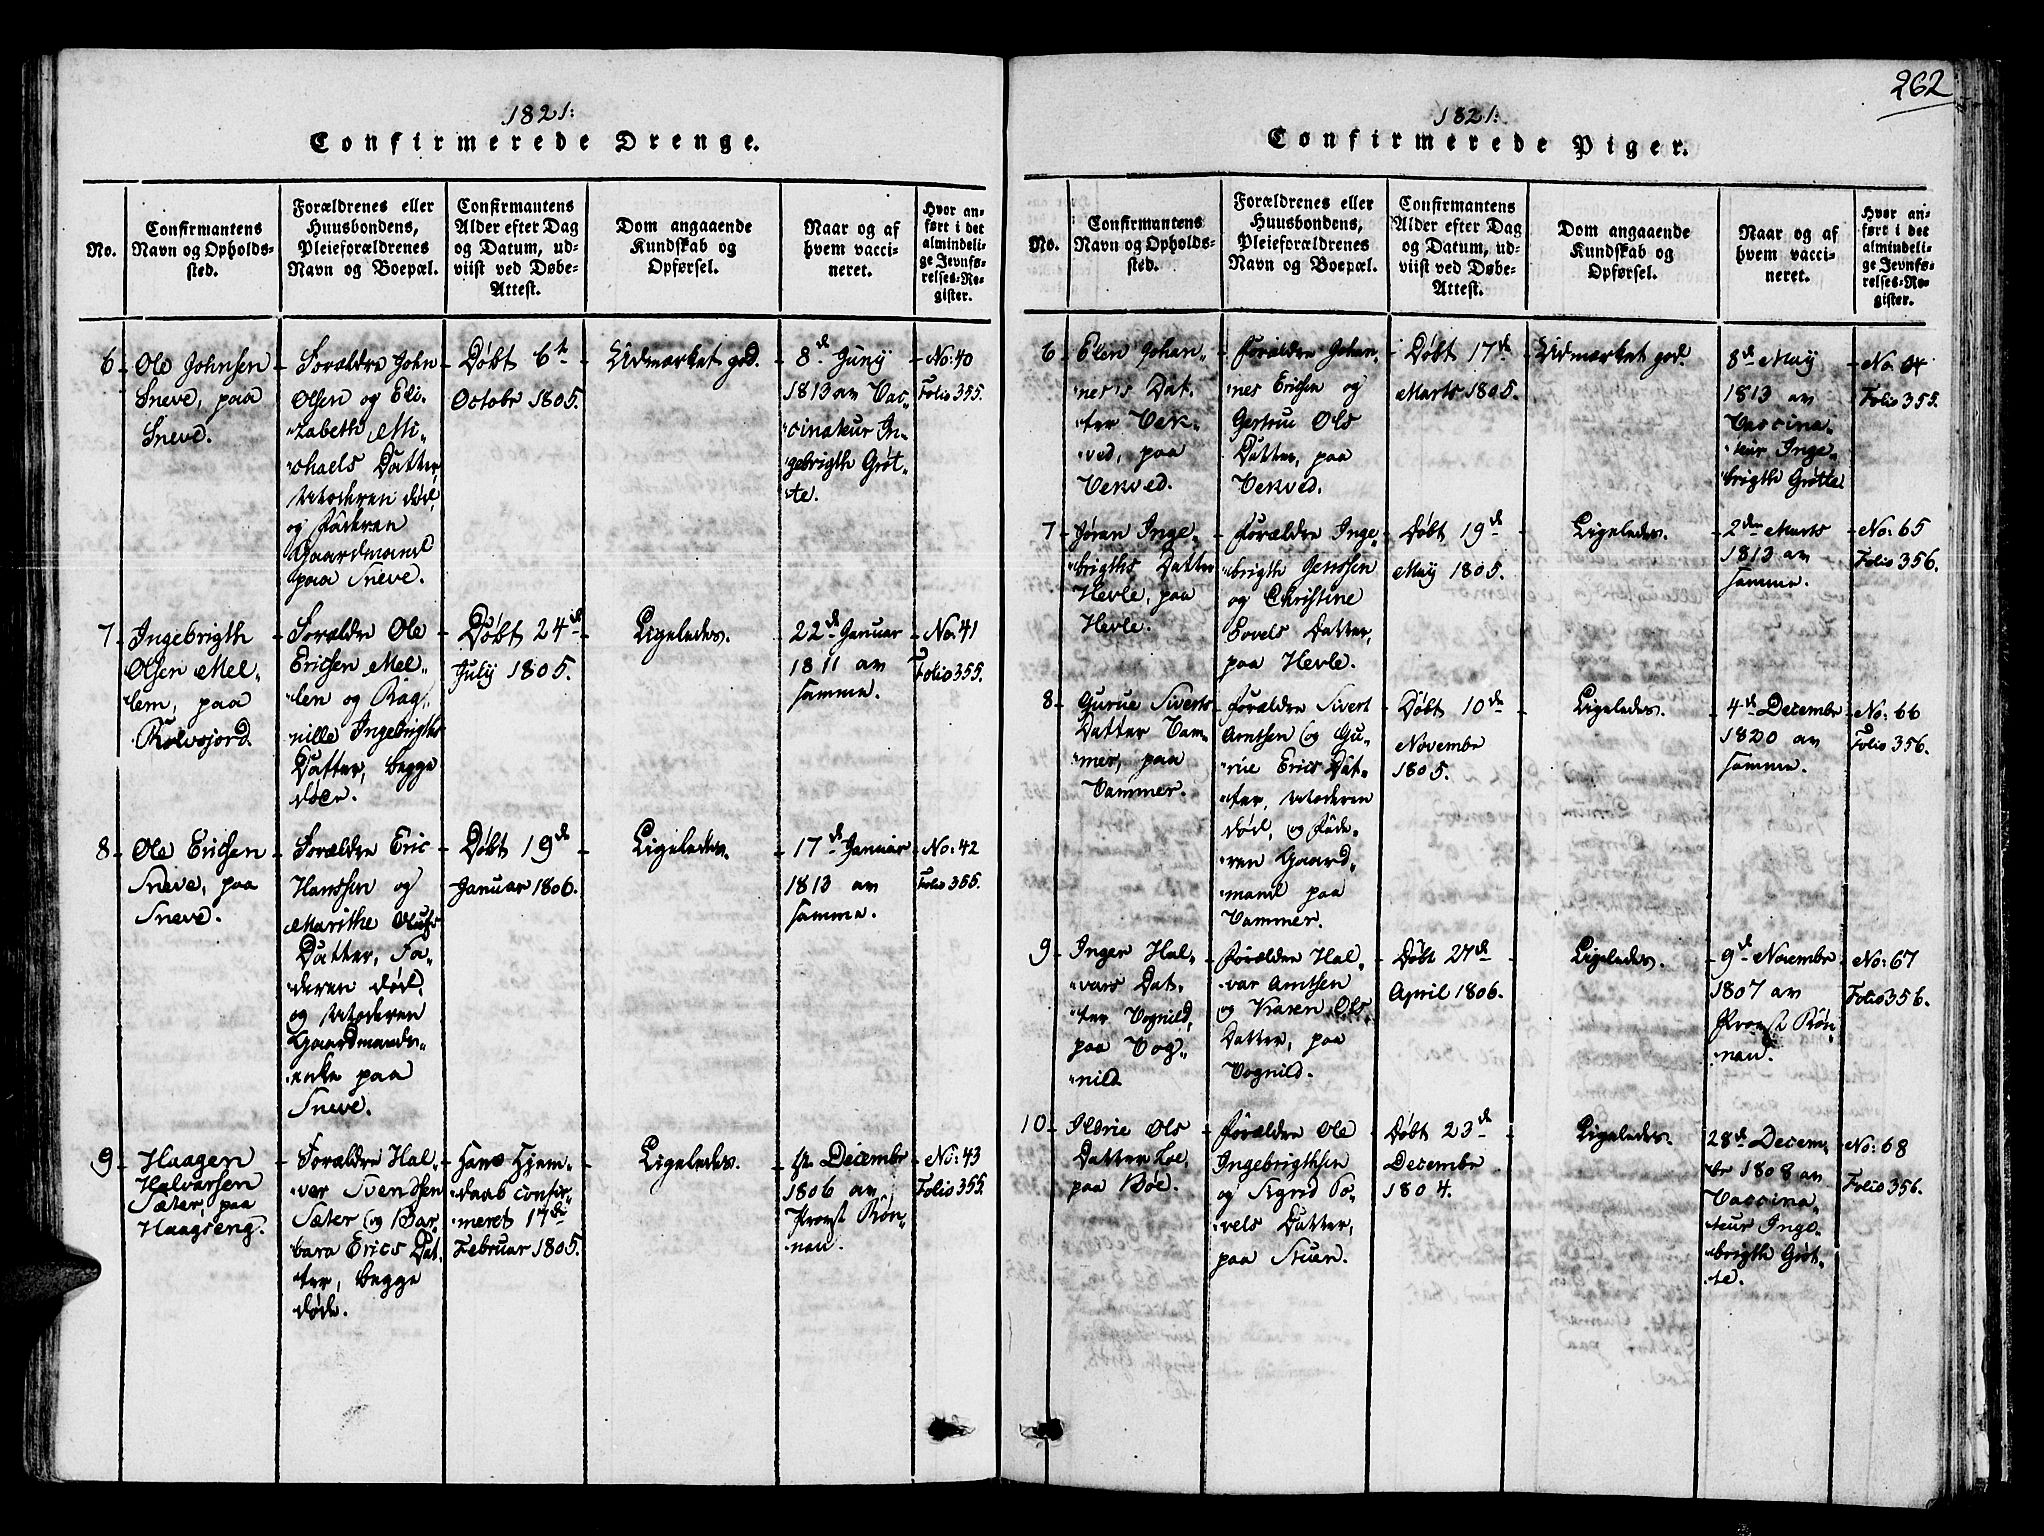 262
1821:
Confirmerede Drenge.
No.
Confirmantens
Navn og Opholds-
sted.
Forældrenes eller
Huusbondens,
Pleieforældrenes
Navn og Boepæl.
Confirmantens
Alder efter Dag
og Datum, ud-
viist ved Døbe-
Attest.
Dom angaaende
Kundskab og
Opførsel.
Naar og af
hvem vacci-
neret.
Hvor an-
ført i det
almindeli-
ge Jevnfø-
relses-Re-
gister.
6
Ole Johnsen
Sneve, paa
Sneve.
Forældre John
Olsen og Eli-
zabeth Mi-
chaels Datter,
Moderen død,
og Faderen
Gaardmand
paa Sneve.
Døbt 6te
Octobr 1805.
Udmærket god.
8de Juny
1813 av Vac-
cinateur In-
gebrigth Grøt-
te.
No: 40
Folio 355.
7
Ingebrigth
Olsen Mel-
lem, paa
Rolvsjord.
Forældre Ole
Ericsen Mel-
len og Rag-
nille Ingebrigths
Datter, begge
døer.
Døbt 24de
July 1805.
Ligeledes.
22de Januar
1811 av
samme.
No: 41
Folio 355.
8
Ole Ericsen
Sneve, paa
Sneve.
Forældre Eric
Hanssen og
Marithe Olufs
Datter, Fa-
deren død,
og Moderen
Gaardmands-
enke paa
Sneve.
Døbt 19de
Januar 1806.
Ligeledes.
17de Januar
1813 av
samme.
No: 42
Folio 355.
9
Haagen
Halvarsen
Sæter, paa
Haagseng.
Forældre Hal-
var Svendsen
Sæter og Bar-
bara Erics Dat-
ter, begge
døde.
Hans Hjem-
daab confir-
meret 17de
Februar 1805.
Ligeledes.
Decembr
1806 av
Provst Røn-
nau.
No: 43
Folio 355.
1821:
Confirmerede Piger.
No.
Confirmantens
Navn og Opholds-
sted.
Forældrenes eller
Huusbondens,
Pleieforældrenes
Navn og Boepæl.
Confirmantens
Alder efter Dag
og Datum, ud-
viist ved Døbe-
Attest.
Dom angaaende
Kundskab og
Opførsel.
Naar og af
hvem vacci-
neret.
Hvor an-
ført i det
almindeli-
ge Jevnfø-
relses-Re-
gister.
6
Elen Johan-
nes's Dat-
ter Vek-
ved, paa
Vekved.
Forældre Johan-
nes Ericsen og
Gertrue Ols
Datter, paa
Vekved.
Døbt 17de
Marts 1805.
Udmærket god.
8de Maij
1813 av
Vaccina-
teur Inge-
brigth Grøtte.
No. 64
Folio 355.
7
Jøran Inge-
brigths Datter
Hevle, paa
Hevle.
Forældre Inge-
brigth Jenssen
og Christine
Povels Datter,
paa Hevle.
Døbt 19de
Maij 1805.
Ligeledes.
2den Marts
1813 av
samme.
No: 65
Folio 356.
8
Gurue Siverts
Datter Vam-
mer, paa
Vammer.
Forældre Sivert
Arntsen og Gu-
rue Erics Dat-
ter, Moderen
død, og Fade-
ren Gaard-
mand paa
Vammer.
Døbt 10de
Novembr
1805.
Ligeledes.
4de Decembr
1820 av
samme.
No: 66
Folio 356.
9
Inger Hal-
vars Dat-
ter Vognild,
paa Vog-
nild
Forældre Hal-
var Arntsen
og Karen Ols
Datter, paa
Vognild.
Døbt 27de
April 1806.
Ligeledes.
9de Novembr
1807 av
Provst Røn-
nau.
No: 67
Folio 356.
10
Ildrie Ols
Datter Loe,
paa Boe.
Forældre Ole
Ingebrigthsen
og Signd Po-
vels Datter,
paa Stuen.
Døbt 23de
Decembr
1804.
Ligeledes.
28de Decem-
br 1808 av
Vaccina-
teur Inge-
brigth Grøt-
te.
No: 68
Folio 356.